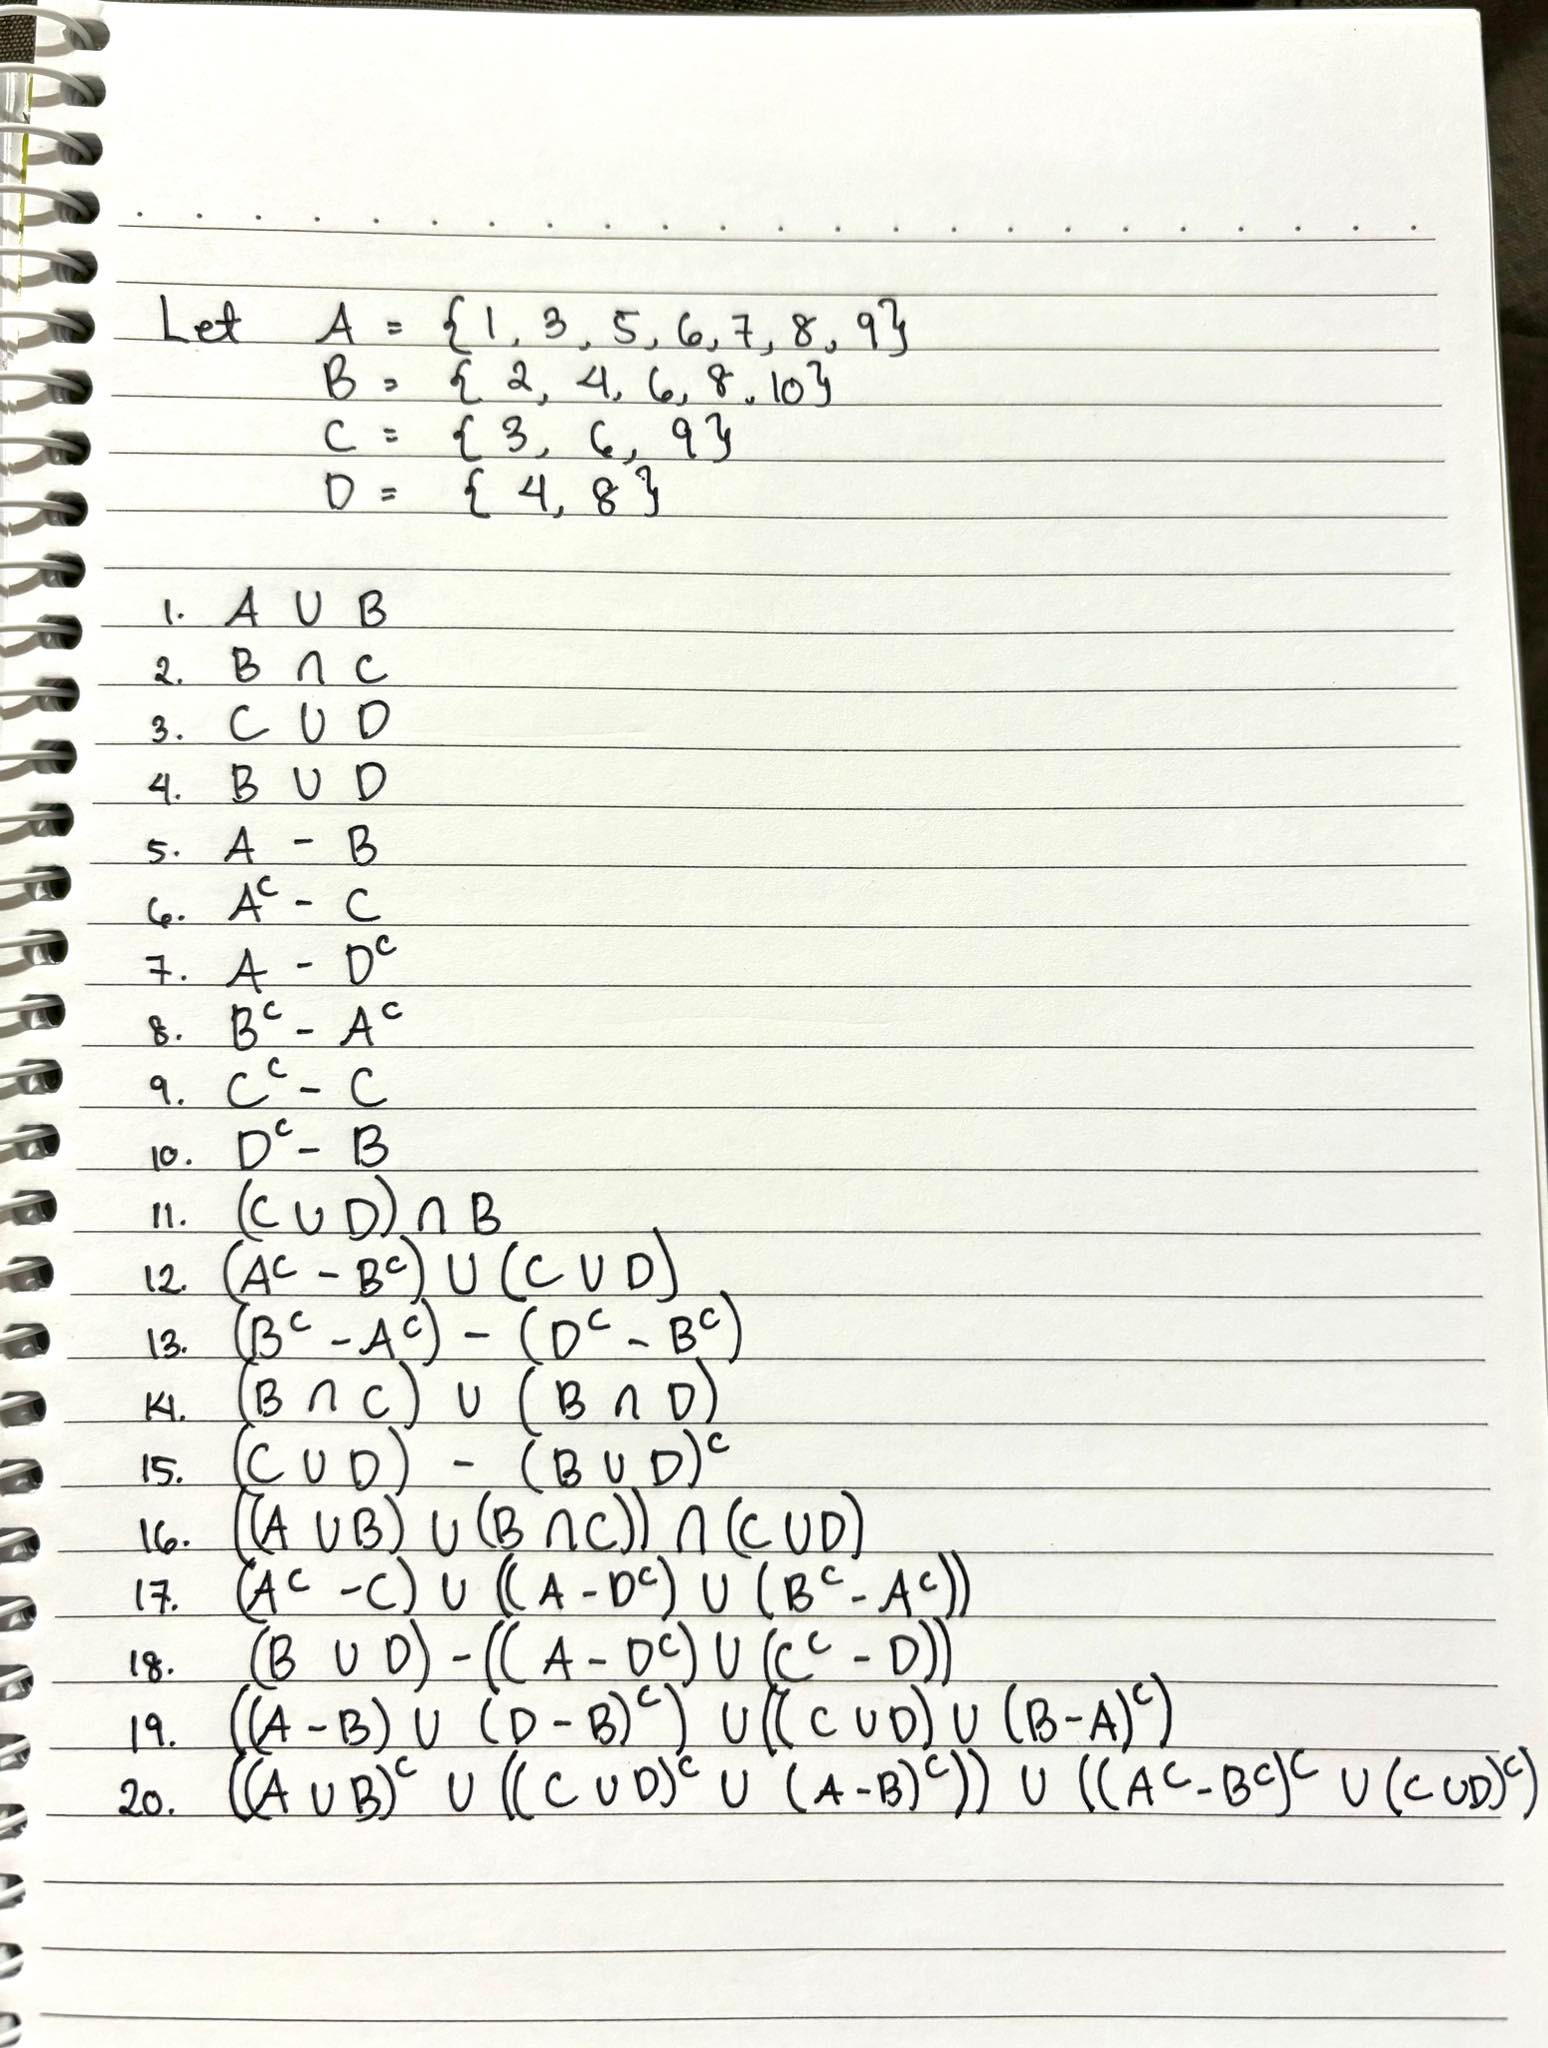 Let A = {1, 3, 5, 6, 7, 8, 9}
B = {2, 4, 6, 8, 10}
C = {3, 6, 9}
D = {4, 8}
1. A ∪ B
2. B ∩ C
3. C ∪ D
4. B ∪ D
5. A - B
6. Aᶜ - C
7. A - Dᶜ
8. Bᶜ - Aᶜ
9. Cᶜ - C
10. Dᶜ - B
11. (C ∪ D) ∩ B
12. (Aᶜ - Bᶜ) ∪ (C ∪ D)
13. (Bᶜ - Aᶜ) - (Dᶜ - Bᶜ)
14. (B ∩ C) ∪ (B ∩ D)
15. (C ∪ D) - (B ∪ D)ᶜ
16. ((A ∪ B) ∪ (B ∩ C)) ∩ (C ∪ D)
17. (Aᶜ - C) ∪ ((A - Dᶜ) ∪ (Bᶜ - Aᶜ))
18. (B ∪ D) - ((A - Dᶜ) ∪ (Cᶜ - D))
19. ((A - B) ∪ (D - B)ᶜ) ∪ ((C ∪ D) ∪ (B - A)ᶜ)
20. ((A ∪ B)ᶜ ∪ ((C ∪ D)ᶜ ∪ (A - B)ᶜ)) ∪ ((Aᶜ - Bᶜ)ᶜ ∪ (C ∪ D)ᶜ)